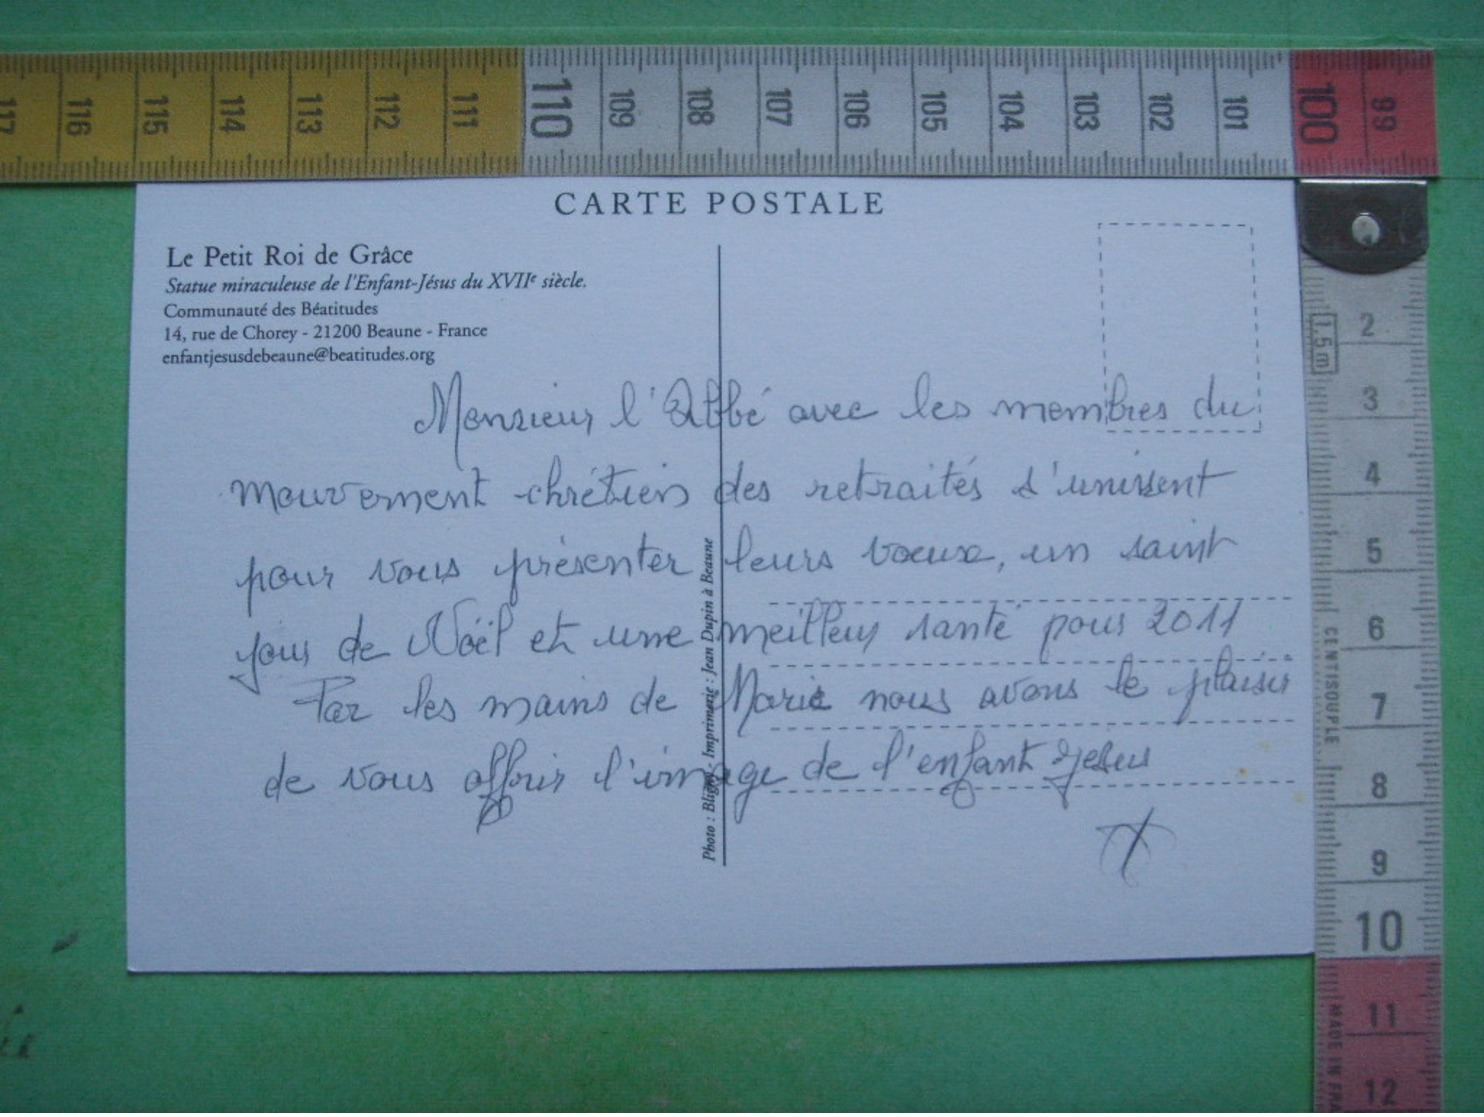 117 116 115 114 113 112 111 110 109 108 107 106 105 104 103 102 101 100 99
CARTE POSTALE
Le Petit Roi de Grâce
Statue miraculeuse de l'Enfant-Jésus du XVIIe siècle.
Communauté des Béatitudes
14, rue de Chorey - 21200 Beaune - France
enfantjesusdebeaune@beatitudes.org
Monsieur l'Abbé avec les membres du
mouvement chrétien des retraités s'unissent
pour vous présenter leurs voeux, un saint
jour de Noël et une meilleur santé pour 2011
Par les mains de Marie nous avons le plaisir
de vous offrir l'image de l'enfant Jesus
Photo : Bligny - Imprimerie : Jean Dupin à Beaune
1,5 m
2
3
4
5
6
CENTISOUPLE
7
8
9
10
11
MADE IN FRA
12